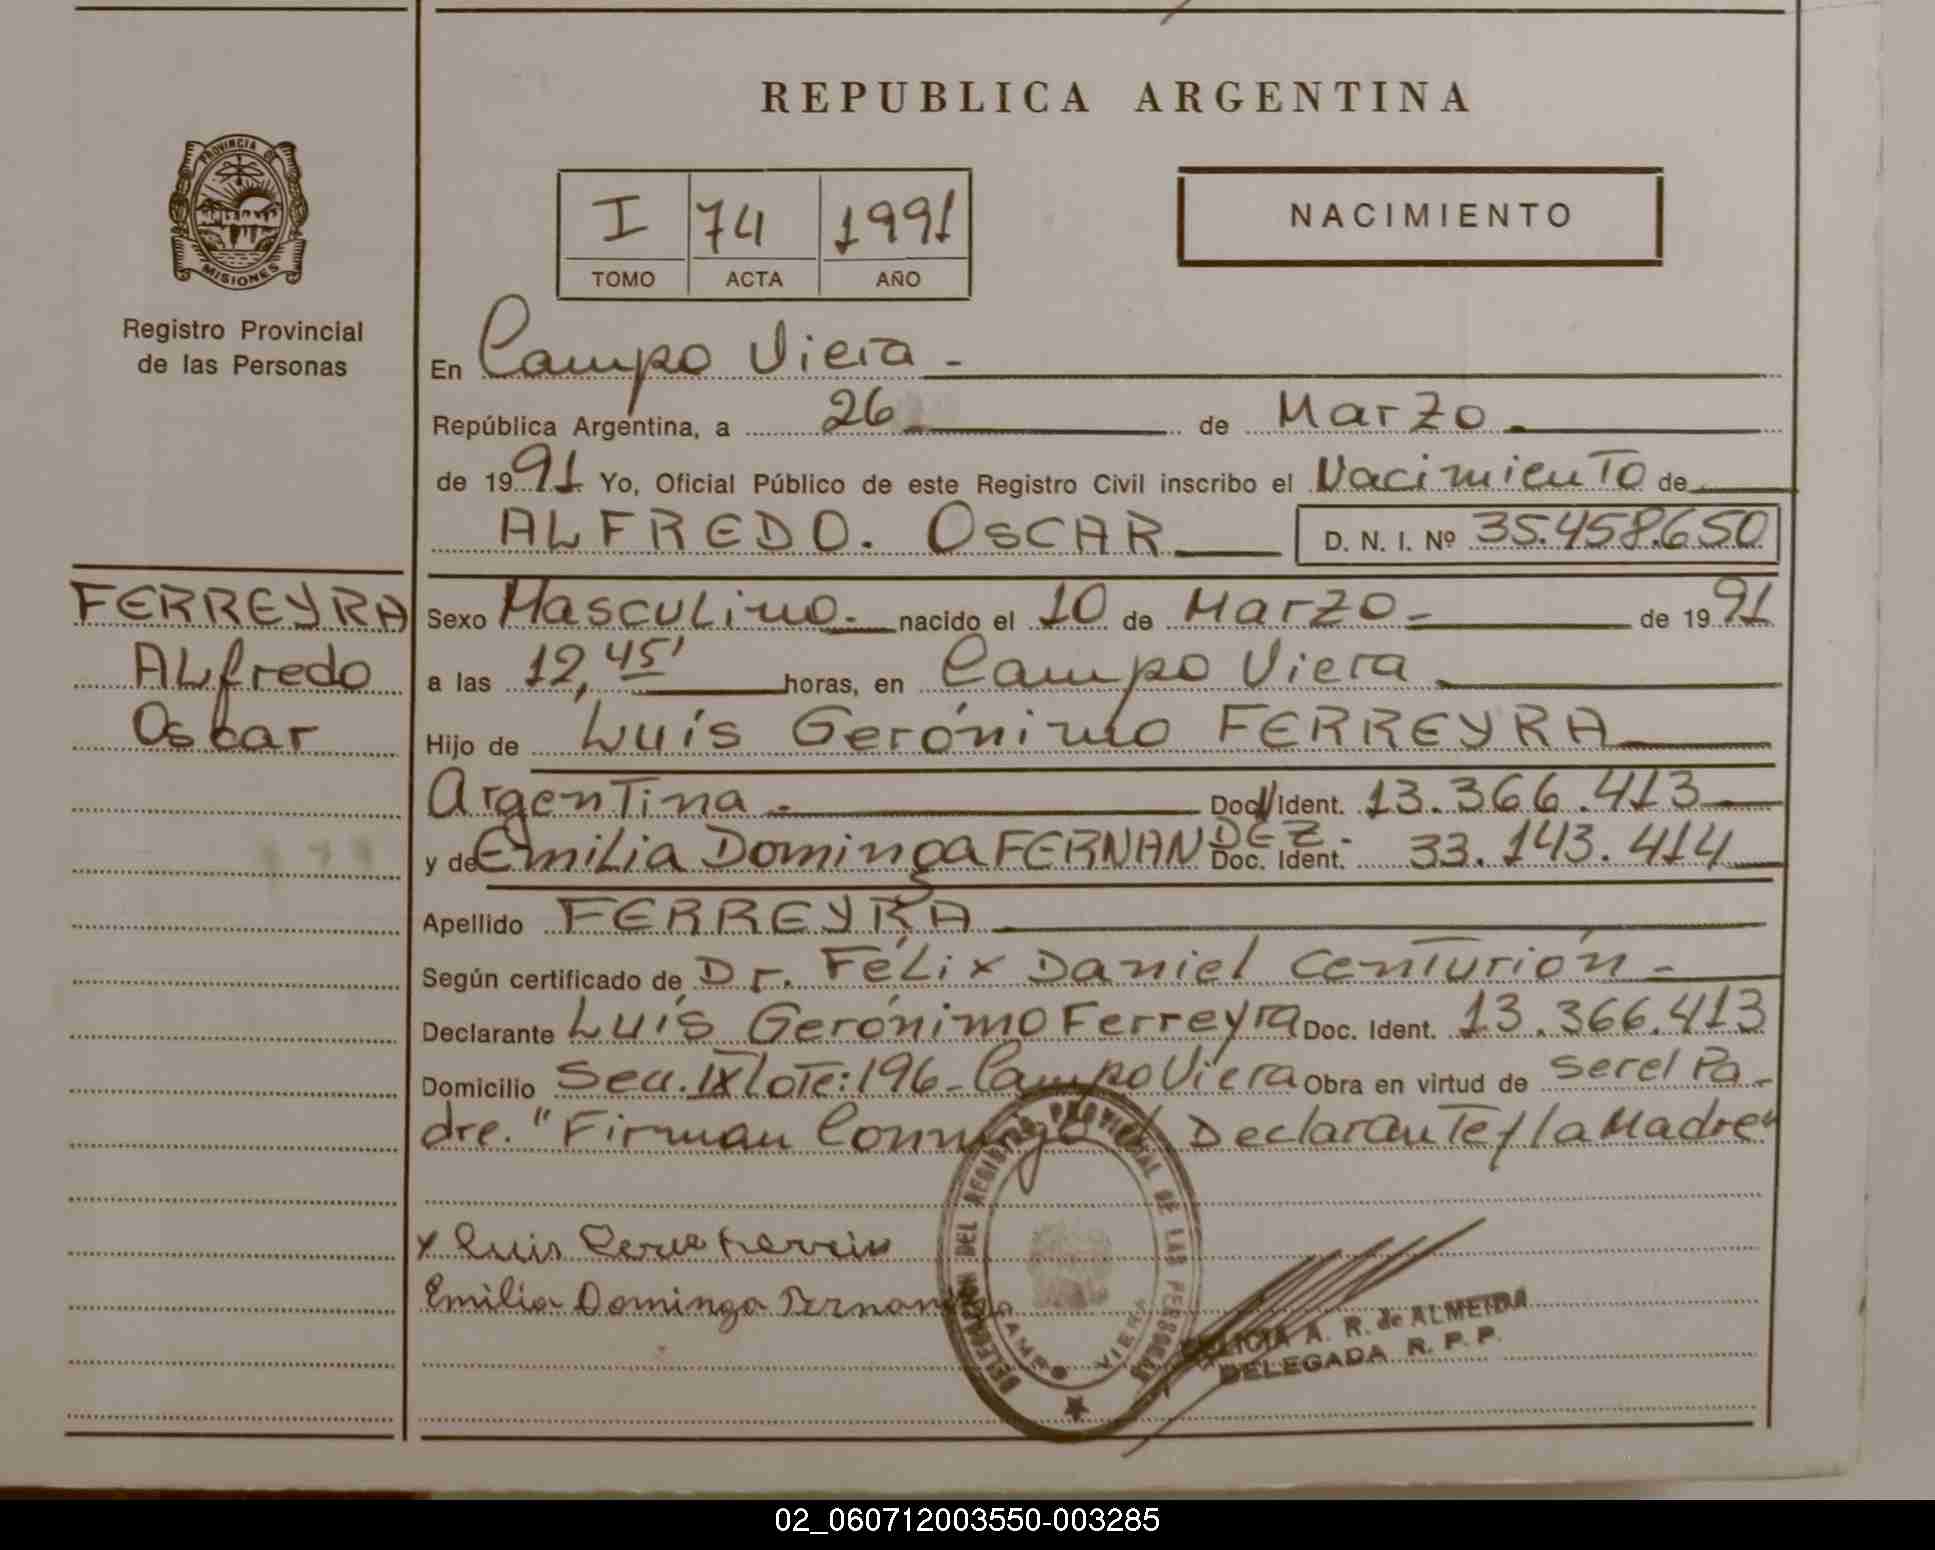 REPUBLICA ARGENTINA
PROVINCIA DE MISIONES
Registro Provincial
de las Personas
I 74 1991
TOMO ACTA AÑO
NACIMIENTO
En Campo Viera -
República Argentina, a 26 de Marzo
de 1991 Yo, Oficial Público de este Registro Civil inscribo el Nacimiento de
ALFREDO. OSCAR D. N. I. Nº 35.458.650
FERREYRA
Alfredo
Oscar
Sexo Masculino.- nacido el 10 de Marzo - de 1991
a las 12,45' horas, en Campo Viera
Hijo de Luís Gerónimo FERREYRA
Argentina - Doc. Ident. 13.366.413
y de Emilia Dominga FERNANDEZ.- Doc. Ident. 33.143.414
Apellido FERREYRA
Según certificado de Dr. Félix Daniel Centurión -
Declarante Luís Gerónimo Ferreyra Doc. Ident. 13.366.413
Domicilio Secc. IX lote: 196 - Campo Viera Obra en virtud de ser el Pa-
dre. "Firman Conmigo Declarante y la Madre"
x Luis
Emilia Dominga
DELEGACION DEL REGISTRO PROVINCIAL DE LAS PERSONAS
CAMPO VIERA
A. R. de ALMEIDA
DELEGADA R. P. P.
02_060712003550-003285